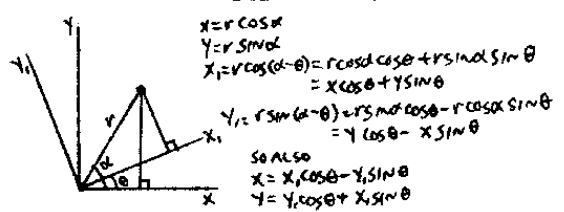 Y
Y₁
r
α
θ
X₁
X
X=r cosα
Y=r sinα
X₁=r cos(α-θ)=r cosα cosθ+r sinα sinθ
= X cosθ+Y sinθ
Y₁= r sin(α-θ)=r sinα cosθ-r cosα sinθ
= Y cosθ- X sinθ
SO ALSO
X= X₁cosθ-Y₁sinθ
Y= Y₁cosθ+ X₁sinθ